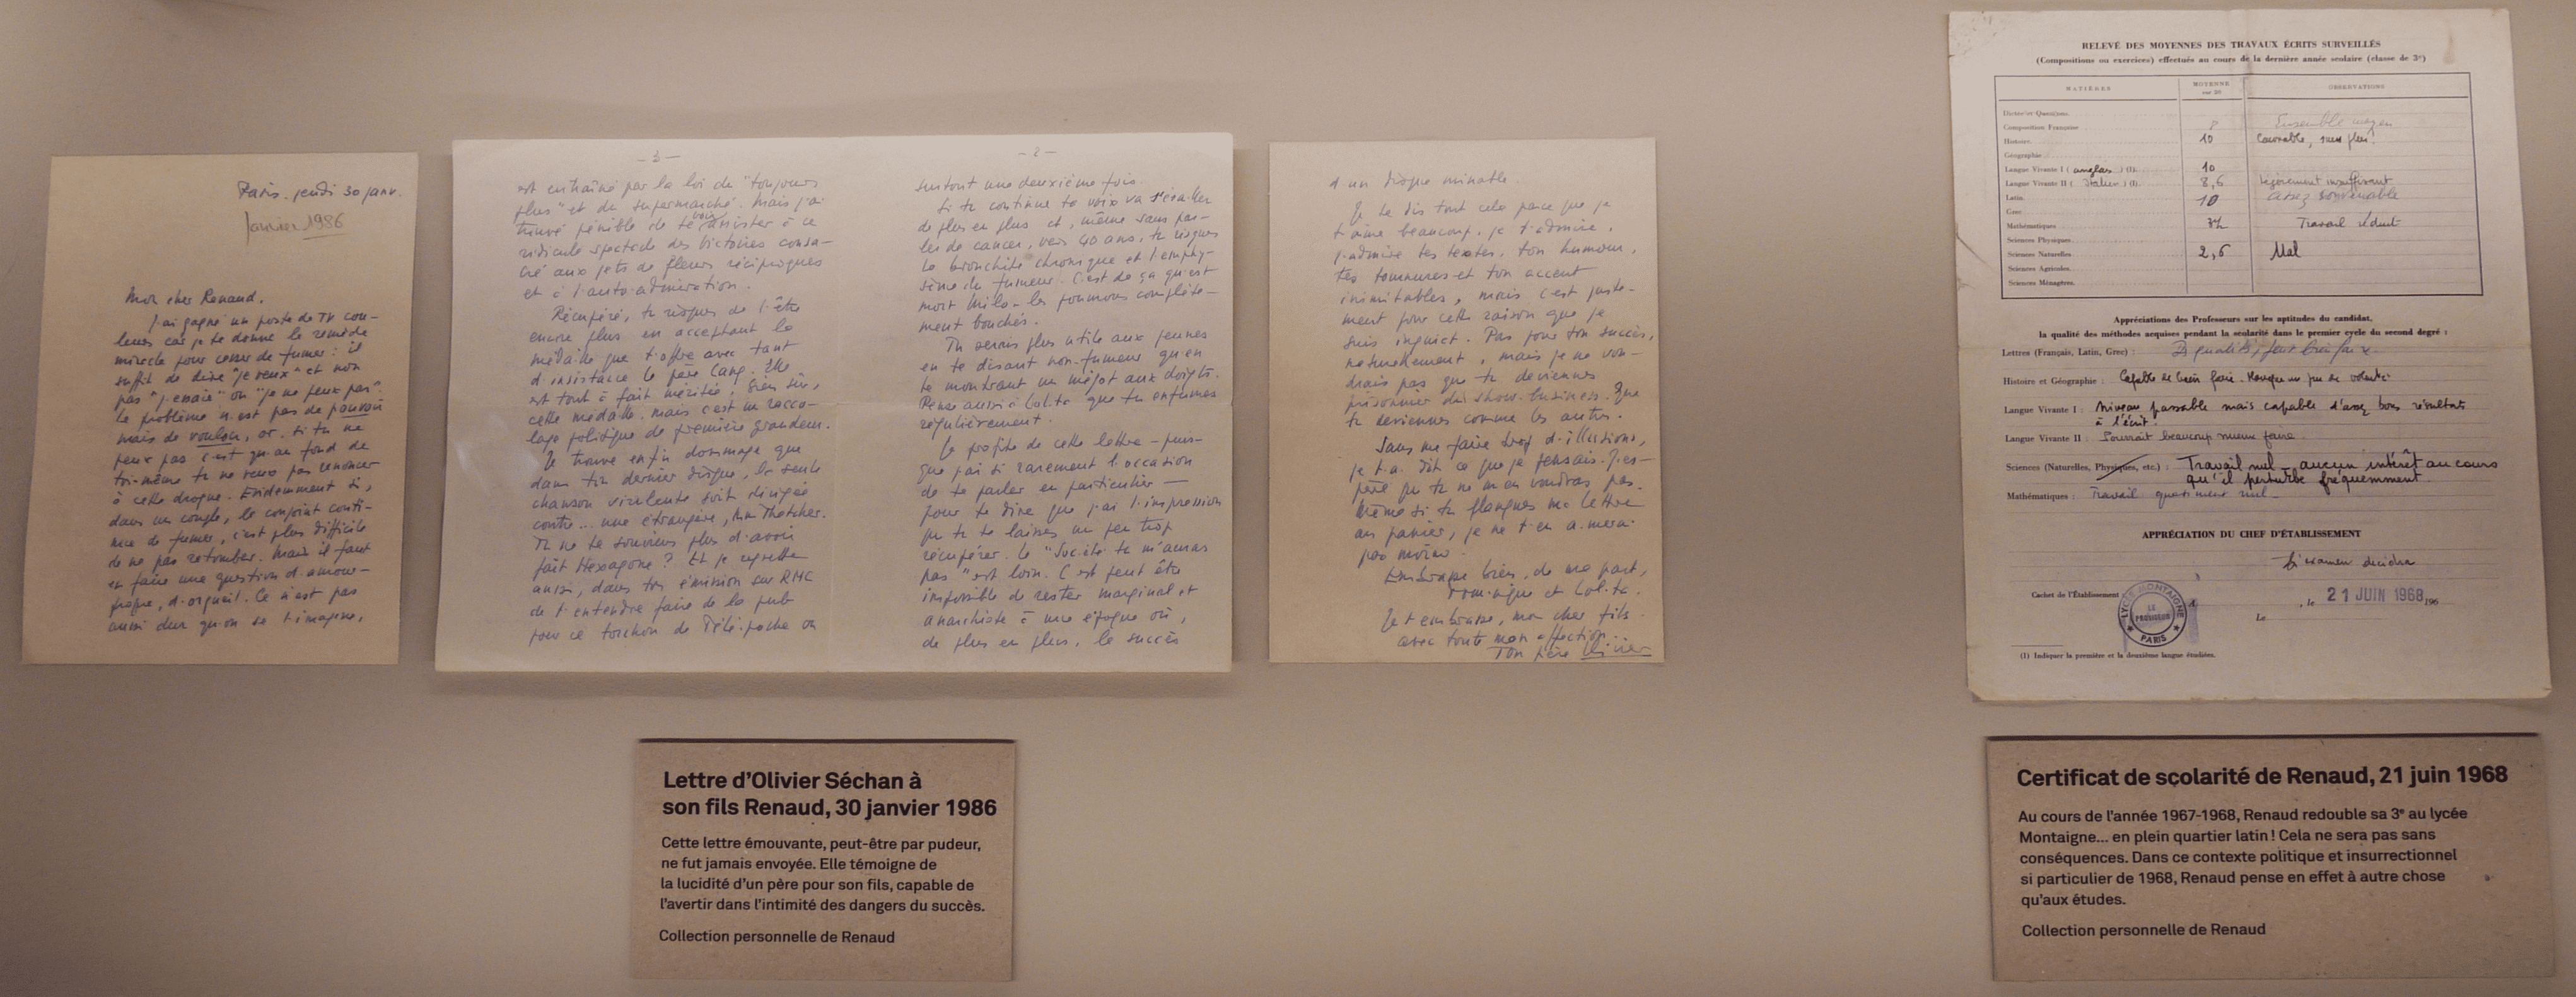 Paris. jeudi 30 janv.
Janvier 1986
Mon cher Renaud.
J'ai gagné un poste de TV cou-
leurs car je te donne le remède
miracle pour cesser de fumer : il
suffit de dire "je veux" et non
pas "j'essaie" ou "je ne peux pas".
Le problème n'est pas de pouvoir
mais de vouloir, or, si tu ne
peux pas c'est qu'au fond de
toi-même tu ne veux pas renoncer
à cette drogue. Evidemment si,
dans un couple, le conjoint conti-
nue de fumer, c'est plus difficile
de ne pas retomber. Mais il faut
en faire une question d'amour-
propre, d'orgueil. Ce n'est pas
aussi dur qu'on se l'imagine,
- 2 -
surtout une deuxième fois.
Si tu continues ta voix va s'érailler
de plus en plus et, même sans par-
ler de cancer, vers 40 ans, tu risques
la bronchite chronique et l'emphy-
sème du fumeur. C'est de ça qu'est
mort Milo - les poumons complète-
ment bouchés.
Tu serais plus utile aux jeunes
en te disant non-fumeur qu'en
te montrant un mégot aux doigts.
Pense aussi à Lolita que tu enfumes
régulièrement.
Je profite de cette lettre - puis-
que j'ai si rarement l'occasion
de te parler en particulier -
pour te dire que j'ai l'impression
que tu te laisses un peu trop
récupérer. Le "Société tu m'auras
pas" est loin. C'est peut être
impossible de rester marginal et
anarchiste à une époque où,
de plus en plus, le succès
- 3 -
est entraîné par la loi de "toujours
plus" et du supermarché. Mais j'ai
trouvé pénible de te voir assister à ce
ridicule spectacle des Victoires consa-
cré aux jets de fleurs réciproques
et à l'auto-admiration.
Récupéré, tu risques de l'être
encore plus en acceptant la
médaille que t'offre avec tant
d'insistance le père Lang. Elle
est tout à fait méritée, bien sûr,
cette médaille. mais c'est un racco-
lage politique de première grandeur.
Je trouve enfin dommage que
dans ton dernier disque, la seule
chanson virulente soit dirigée
contre... une étrangère, Mm Thatcher.
Tu ne te souviens plus d'avoir
fait Hexagone ? Et je regrette
aussi, dans ton émission sur RMC
de t'entendre faire de la pub
pour ce torchon de Télé-poche ou
d'un disque minable.
Je te dis tout cela parce que je
t'aime beaucoup. je t'admire,
j'admire tes textes, ton humour,
tes tournures et ton accent
inimitables, mais c'est juste-
ment pour cette raison que je
suis inquiet. Pas pour ton succès,
naturellement, mais je ne vou-
drais pas que tu deviennes
prisonnier du show-business. Que
tu deviennes comme les autres.
Sans me faire trop d'illusions,
je t'ai dit ce que je pensais. J'es-
père que tu ne m'en voudras pas.
Même si tu flanques ma lettre
au panier, je ne t'en aimerai
pas moins.
Embrasse bien, de ma part,
Dominique et Lolita.
Je t'embrasse, mon cher fils
avec toute mon affection...
Ton père Olivier
RELEVÉ DES MOYENNES DES TRAVAUX ÉCRITS SURVEILLÉS
(Compositions ou exercices) effectués au cours de la dernière année scolaire (classe de 3e)
MATIÈRES MOYENNE sur 20 OBSERVATIONS
Dictée et Questions.
Composition Française 8 Ensemble moyen
Histoire 10 Convenable, sans plus.
Géographie
Langue Vivante I (anglais) (I). 10
Langue Vivante II (Italien) (I). 8,5 légèrement insuffisant
Latin. 10 assez convenable
Grec
Mathématiques Travail réduit
Sciences Physiques
Sciences Naturelles 2,5 Mal
Sciences Agricoles.
Sciences Ménagères.
Appréciations des Professeurs sur les aptitudes du candidat,
la qualité des méthodes acquises pendant la scolarité dans le premier cycle du second degré :
Lettres (Français, Latin, Grec) : Des qualités, peut bien faire.
Histoire et Géographie : Capable de bien faire. Manque un peu de volonté
Langue Vivante I : Niveau passable mais capable d'assez bons résultats
à l'écrit.
Langue Vivante II : Pourrait beaucoup mieux faire
Sciences (Naturelles, Physiques, etc.) : Travail nul - aucun intérêt au cours
qu'il perturbe fréquemment.
Mathématiques : Travail quasiment nul -
APPRÉCIATION DU CHEF D'ÉTABLISSEMENT
L'examen decidera
Cachet de l'Établissement
LYCÉE MONTAIGNE
LE PROVISEUR
PARIS
, le 21 JUIN 1968 196
Le
(I) Indiquer la première et la deuxième langue étudiées.
Lettre d'Olivier Séchan à
son fils Renaud, 30 janvier 1986
Cette lettre émouvante, peut-être par pudeur,
ne fut jamais envoyée. Elle témoigne de
la lucidité d'un père pour son fils, capable de
l'avertir dans l'intimité des dangers du succès.
Collection personnelle de Renaud
Certificat de scolarité de Renaud, 21 juin 1968
Au cours de l'année 1967-1968, Renaud redouble sa 3e au lycée
Montaigne... en plein quartier latin ! Cela ne sera pas sans
conséquences. Dans ce contexte politique et insurrectionnel
si particulier de 1968, Renaud pense en effet à autre chose
qu'aux études.
Collection personnelle de Renaud